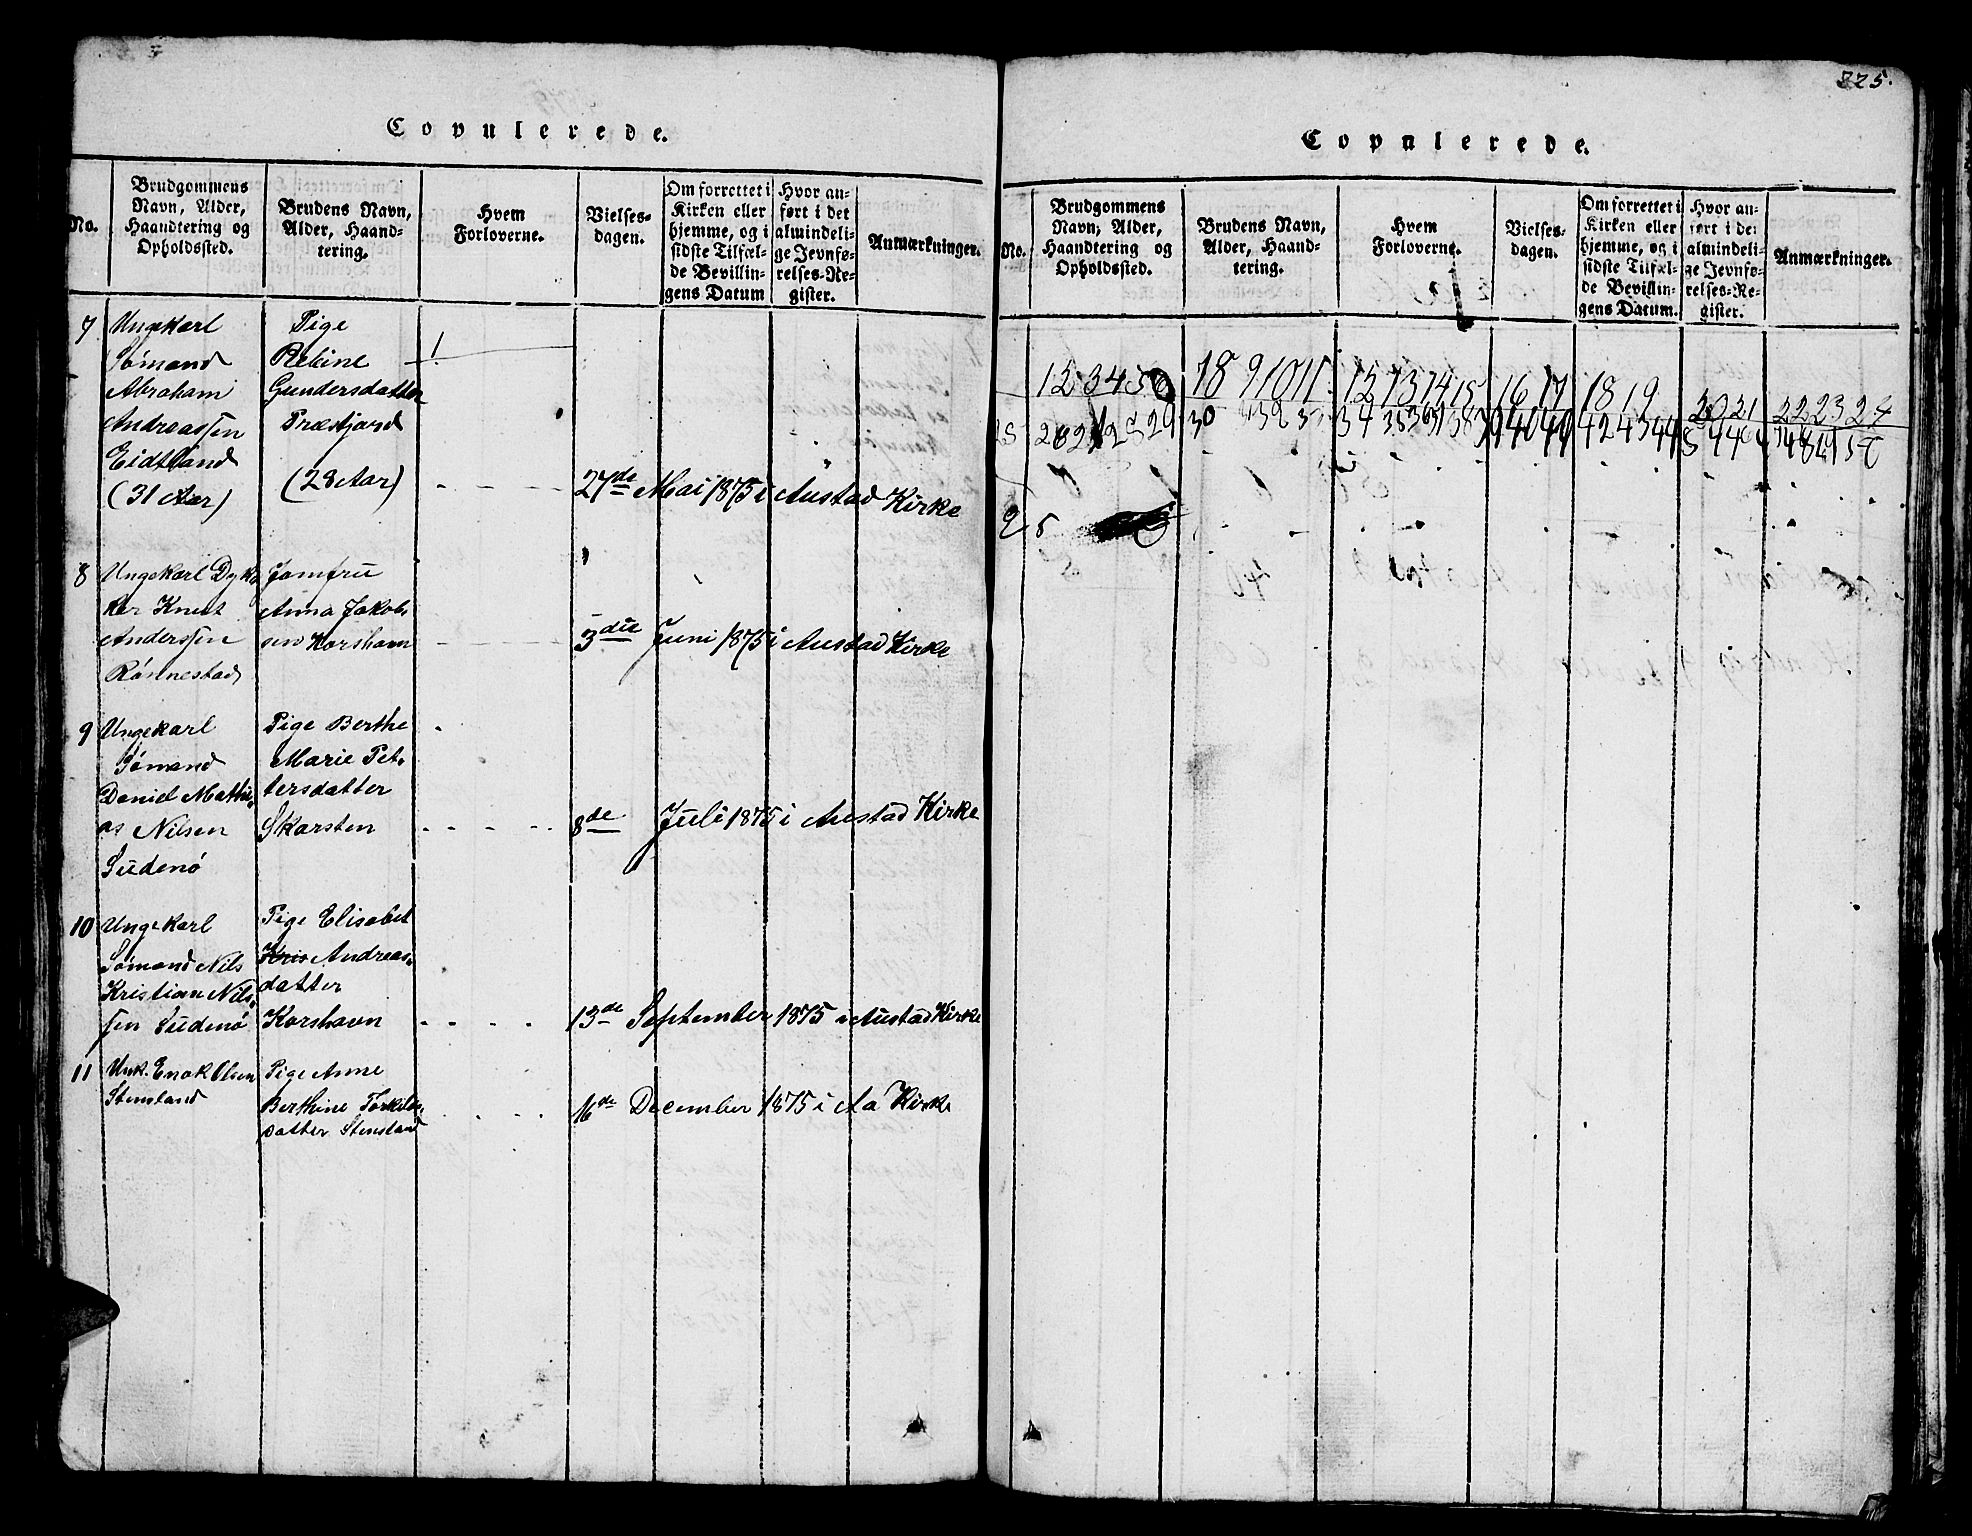 Copulerede.
No.
Brudgommens
Navn, Alder,
Haandtering og
Opholdssted.
Brudens Navn,
Alder, Haand-
tering.
Hvem
Forloverne.
Vielses-
dagen.
Om forrettet i
Kirken eller
hjemme, og i
sidste Tilfæl-
de Bevillin-
gens Datum
Hvor an-
ført i det
almindeli-
ge Jevnfø-
relses-Re-
gister.
Anmærkninger.
7
Ungekarl
Sømand
Abraham
Andreassen
Eidtland
(31 Aar)
Pige
Rebine
Gundersdatter
Træsfjord
(28 Aar)
27de Mai 1875 i Austad Kirke
8
Ungekarl Dyk-
ker Knut
Anderssen
Rønnestad
Jomfru
Anna Jakob-
sen Korshavn
3die Juni 1875 i Austad Kirke
9
Ungekarl
Sømand
Daniel Mathi-
as Nilsen
Sudenø
Pige Berthe
Marie Pet-
tersdatter
Skarsten
8de Juli 1875 i Austad Kirke
10
Ungekarl
Sømand Nils
Kristian Nils-
sen Sudenø
Pige Elisabet
Kris Andreas-
datter
Korshavn
13de September 1875 i Austad Kirke
11
Unk. Enok Olsen
Stensland
Pige Anne
Berthine Torkils-
datter Stensland
16de December 1875 i Aa Kirke
225.
Copulerede.
No.
Brudgommens
Navn, Alder,
Haandtering og
Opholdssted.
Brudens Navn,
Alder, Haand-
tering.
Hvem
Forloverne.
Vielses-
dagen.
Om forrettet i
Kirken eller
hjemme, og i
sidste Tilfæl-
de Bevillin-
gens Datum.
Hvor an-
ført i det
almindeli-
ge Jevnfø-
relses-Re-
gister.
Anmærkninger.
12 3 4 5 6 78 9 10 11 12 13 14 15 16 17 18 19 20 21 22 23 24